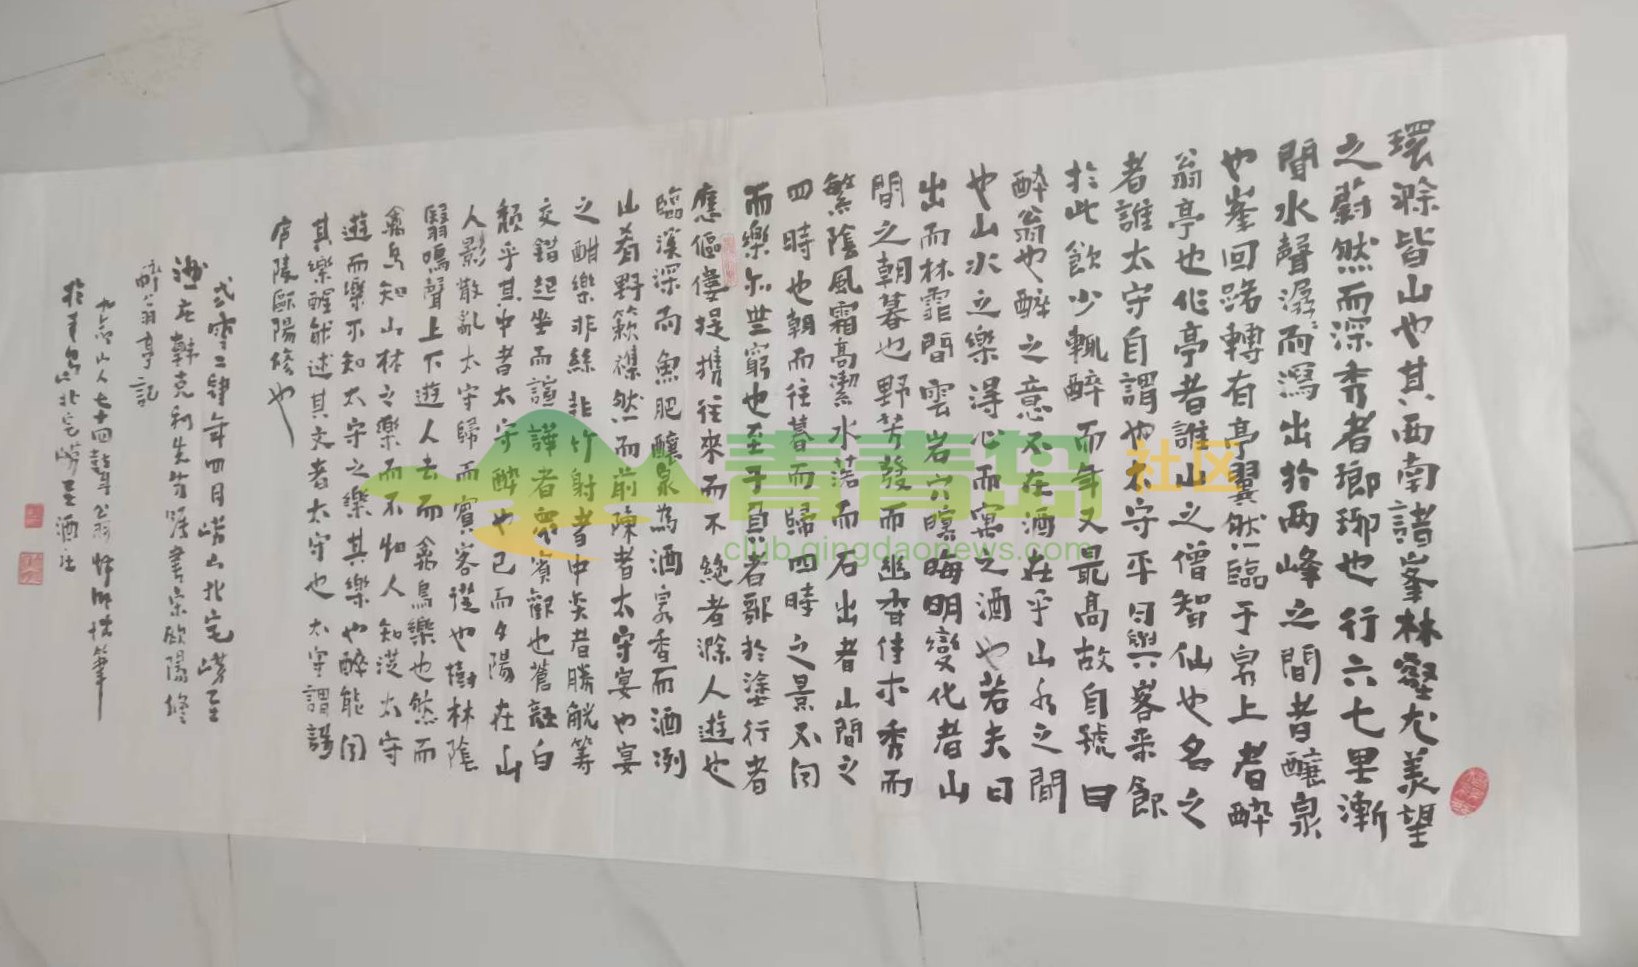 環滁皆山也其西南諸峯林壑尤美望
之蔚然而深秀者瑯琊也行六七里漸
聞水聲潺而瀉出於两峰之間者釀泉
也峯回路轉有亭翼然臨于泉上者醉
翁亭也作亭者誰山之僧智仙也名之
者誰太守自謂也太守平日與客来飲
於此飲少輒醉而年又最高故自號曰
醉翁也醉之意不在酒在乎山水之間
也山水之樂得心而寓之酒也若夫日
出而林霏開雲岩穴暝晦明變化者山
間之朝暮也野芳發而幽香佳木秀而
繁陰風霜高潔水落而石出者山間之
四時也朝而往暮而歸四時之景不同
而樂亦無窮也至于負者歌於塗行者
應傴僂提攜往來而不絶者滁人遊也
臨溪深而魚肥釀泉為酒泉香而酒洌
山肴野簌襍然而前陳者太守宴也宴
之酣樂非絲非竹射者中奕者勝觥筹
交錯起坐而諠譁者衆賓歡也蒼顔白
頹乎其中者太守醉也已而夕陽在山
人影散亂太守歸而賓客從也樹林陰
翳鳴聲上下遊人去而禽鳥樂也然而
禽鳥知山林之樂而不知人知從太守
遊而樂不知太守之樂其樂也醉能同
其樂醒能述其文者太守也太守謂誰
廬陵歐陽修也
弍零二肆年四月嶗山北宅嶗玉
酒庄韓克利先生嘱書宋欧陽修
醉翁亭記
九山人七十四翁筆
於青島北宅嶗玉酒庄
青青岛社区
club.qingdaonews.com